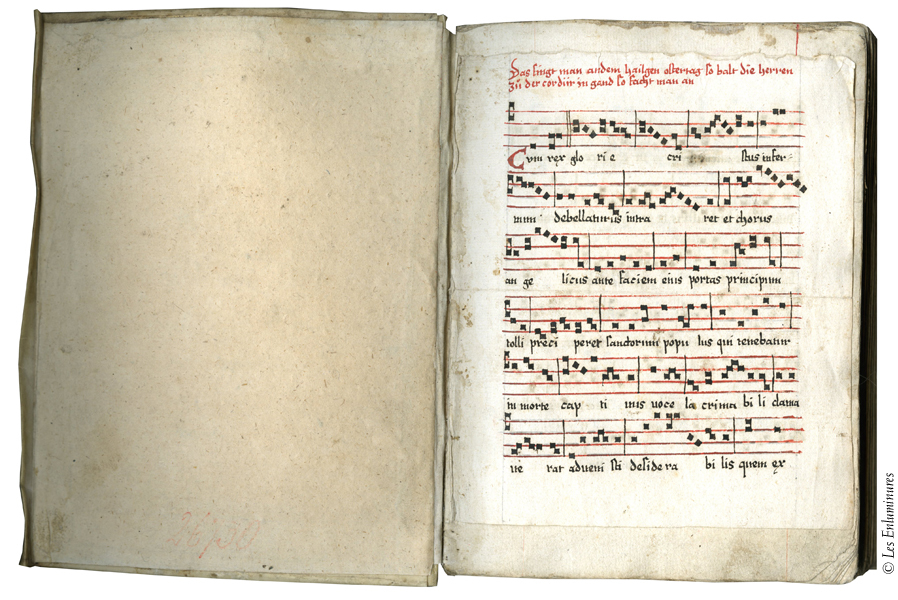 Das singt man andem hailgen ostertag so balt die herren
zů der cordűr in gand so facht man an
Cum rex glo ri e cri stus infer-
num debellaturus intra ret et chorus
an ge licus ante faciem eius portas principum
tolli preci peret sanctorum popu lus qui tenebatur
in morte cap ti uus uoce la crima bi li clama
ue rat adueni sti desidera bi lis quem ex
© Les Enluminures